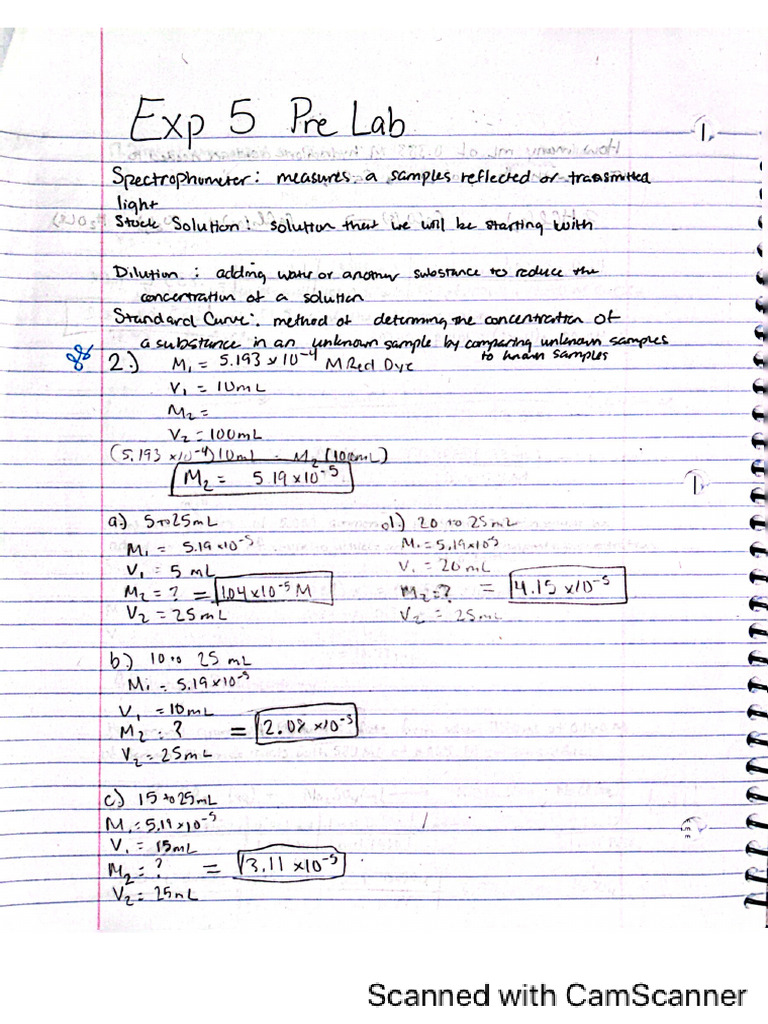 Exp 5 Pre Lab
Spectrophometer: measures a samples reflected or transmitted
light
Stock Solution: solution that we will be starting with
Dilution : adding water or another substance to reduce the
concentration of a solution
Standard Curve: method of determining the concentration of
a substance in an unknown sample by comparing unknown samples
to known samples
2.) M₁ = 5.193 x 10⁻⁴ M Red Dye
V₁ = 10mL
M₂ =
V₂ = 100mL
(5.193 x10⁻⁴)10mL = M₂(100mL)
M₂ = 5.19x10⁻⁵
a.) 5 to 25mL
M₁ = 5.19x10⁻⁵
V₁ = 5 mL
M₂ = ? = 1.04x10⁻⁵ M
V₂ = 25mL
d.) 20 to 25mL
M₁ = 5.19x10⁻⁵
V₁ = 20mL
M₂ = ? = 4.15 x10⁻⁵
V₂ = 25mL
b.) 10 to 25 mL
M₁ = 5.19x10⁻⁵
V₁ = 10mL
M₂ = ? = 2.08 x10⁻⁵
V₂ = 25mL
c) 15 to 25mL
M₁ = 5.19x10⁻⁵
V₁ = 15mL
M₂ = ? = 3.11 x10⁻⁵
V₂ = 25mL
Scanned with CamScanner